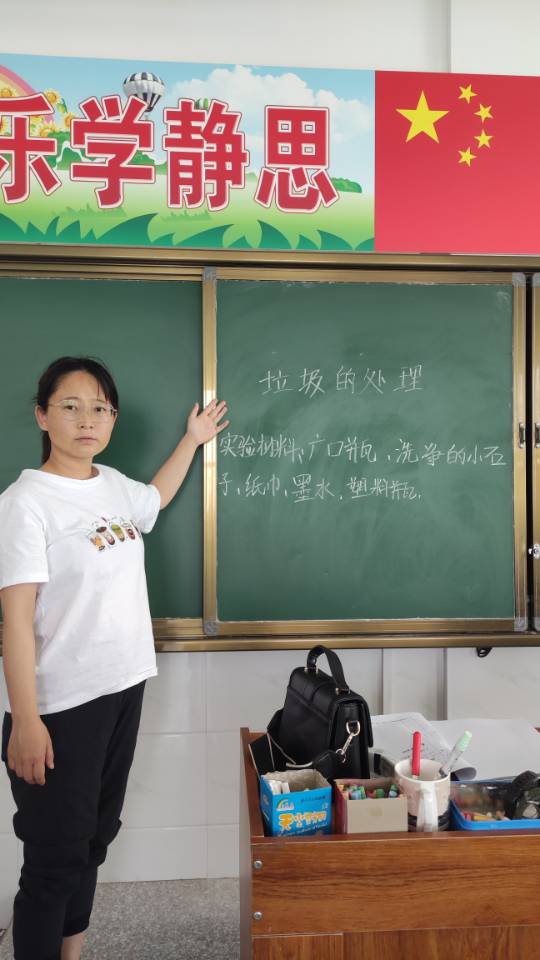 乐学静思
垃圾的处理
实验材料、广口瓶、洗净的小石
子、纸巾、墨水、塑料瓶.